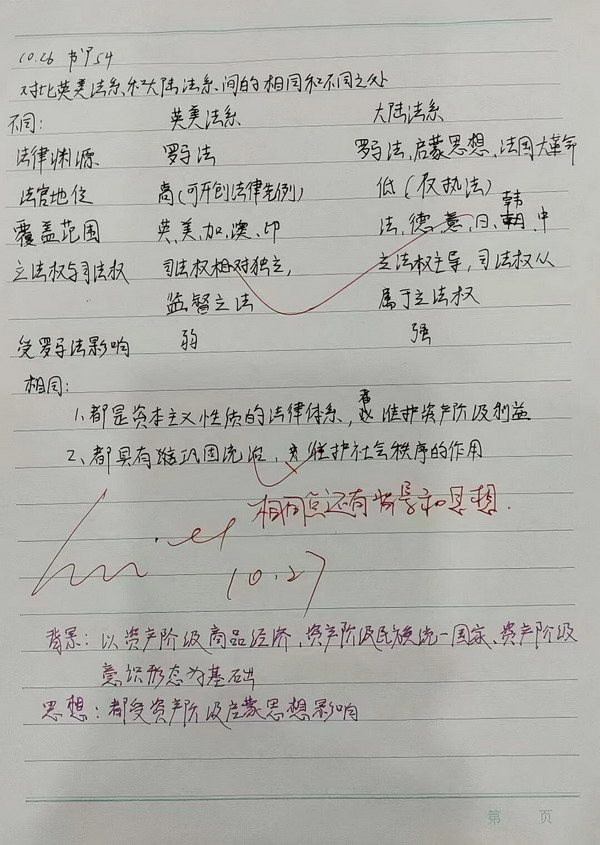 10.26 书P54
对比英美法系和大陆法系间的相同和不同之处
不同: 英美法系 大陆法系
法律渊源 罗马法 罗马法,启蒙思想,法国大革命
法官地位 高(可开创法律先例) 低(仅执法)
覆盖范围 英、美、加、澳、印 法、德、意、日、韩、中
立法权与司法权 司法权相对独立, 立法权主导,司法权从
监督立法 属于立法权
受罗马法影响 弱 强
相同:
1、都是资本主义性质的法律体系, 维护资产阶级利益
2、都具有巩固统治, 维护社会秩序的作用
相同点还有背景和思想.
10.27
背景: 以资产阶级商品经济、资产阶级民族统一国家、资产阶级
意识形态为基础
思想: 都受资产阶级启蒙思想影响
第 页